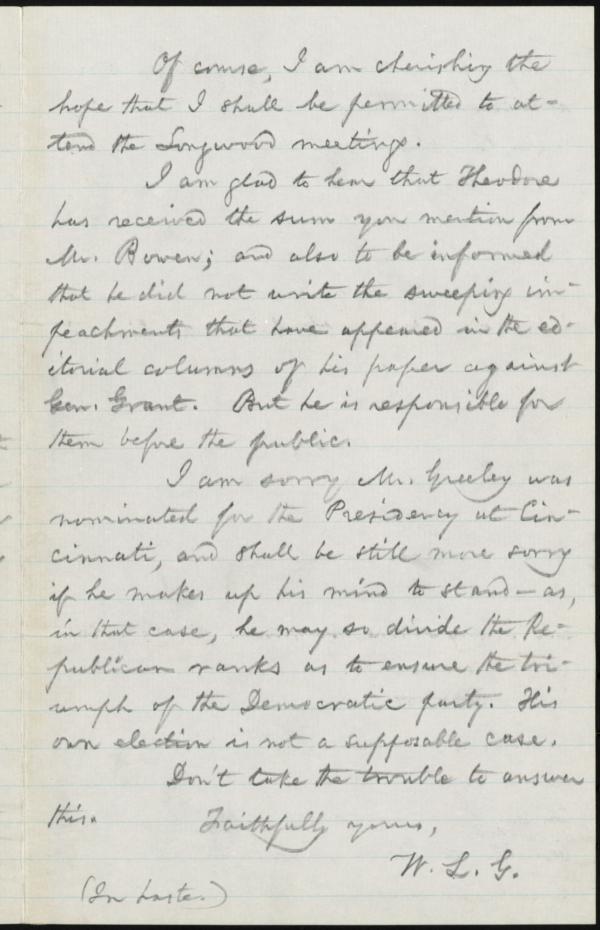 Of course, I am cherishing the
hope that I shall be permitted to at-
tend the Longwood meetings.
I am glad to hear that Theodore
has received the sum you mention from
Mr. Bowen; and also to be informed
that he did not write the sweeping im-
peachments that have appeared in the ed-
itorial columns of his paper against
Gen. Grant. But he is responsible for
them before the public.
I am sorry Mr. Greeley was
nominated for the Presidency at Cin-
cinnati, and shall be still more sorry
if he makes up his mind to stand—as,
in that case, he may so divide the Re-
publican ranks as to ensure the tri-
umph of the Democratic party. His
own election is not a supposable case.
Don't take the trouble to answer
this.
Faithfully yours,
W. L. G.
(In haste.)